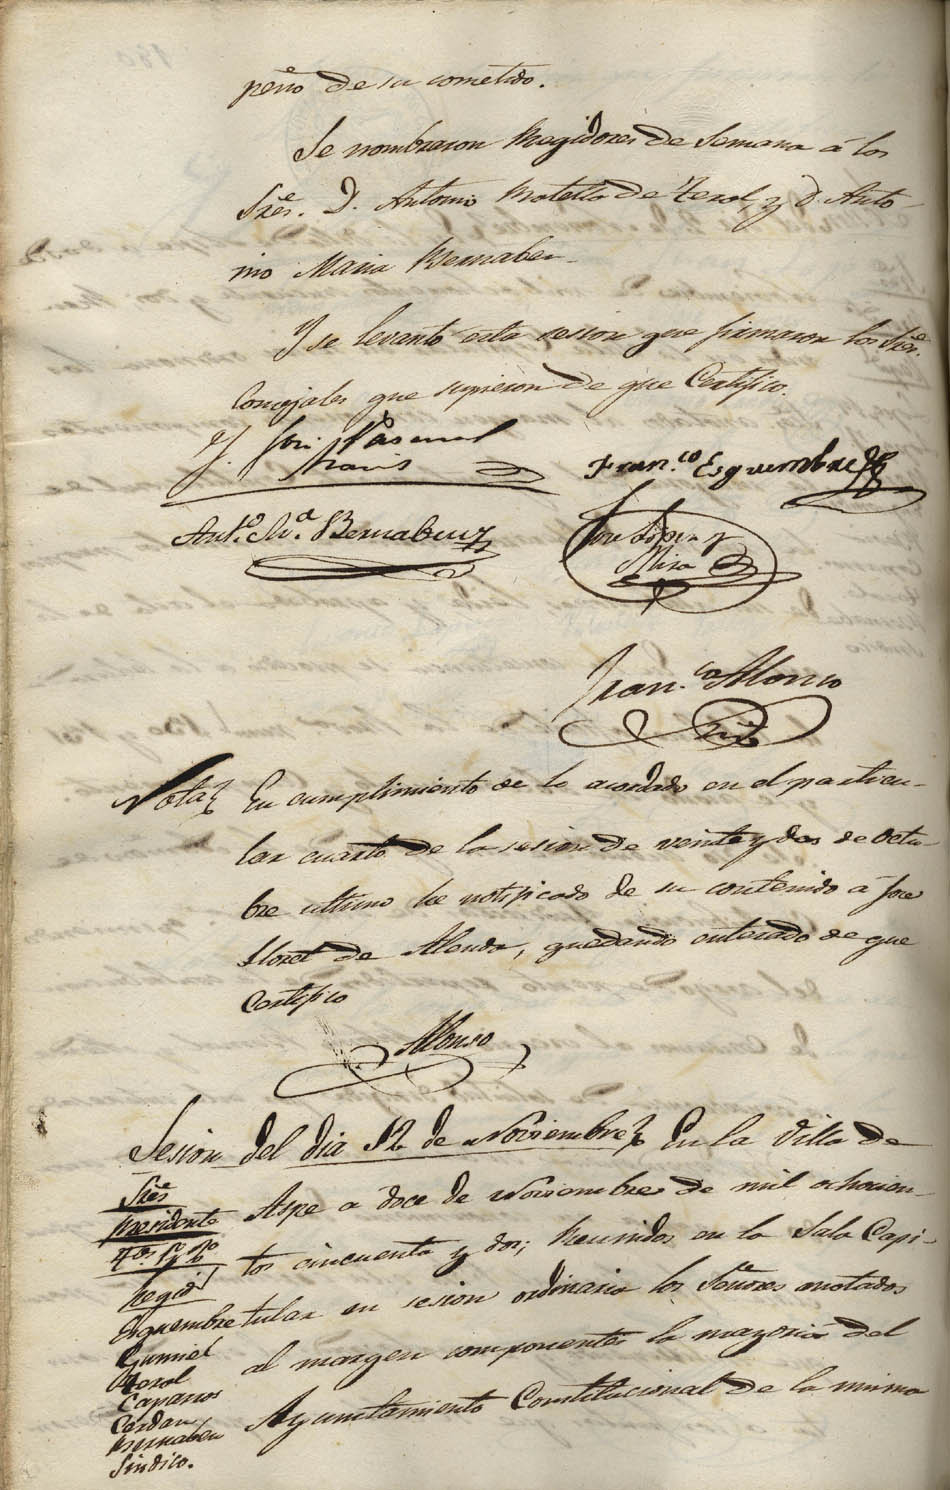 peño de su cometido.
Se nombraron Regidores de Semana á los
Sres. D. Antonio Botella de Terol, y D. Anto
nio Maria Bernabeu.
Y se levantó esta sesion que firmaron los Sres.
Concejales que supieron de que Certifico.
José Pascual
Fran.co Esquembre
Ant.o M.a Bernabeu
José Lopez y
Mira
Fran.co Alonso
Srio
Nota En cumplimiento de lo acordado en el particu-
lar cuarto de la sesion de veinte y dos de Octu-
bre ultimo he notificado de su contenido á José
Lloret de Alenda, quedando enterado de que
Certifico
Alonso
Sesion del dia 12 de Noviembre En la Villa de
Aspe a doce de Noviembre de mil ochocien-
tos cincuenta y dos; Reunidos en la Sala Capi-
tular en sesion ordinaria los Señores anotados
al margen componentes la mayoria del
Ayuntamiento Constitucional de la misma
Sres
Presidente
Ttes 1o y 2o
Regid
Esquembre
Gumiel
Terol
Caparros
Cerdan
Bernabeu
Sindico.